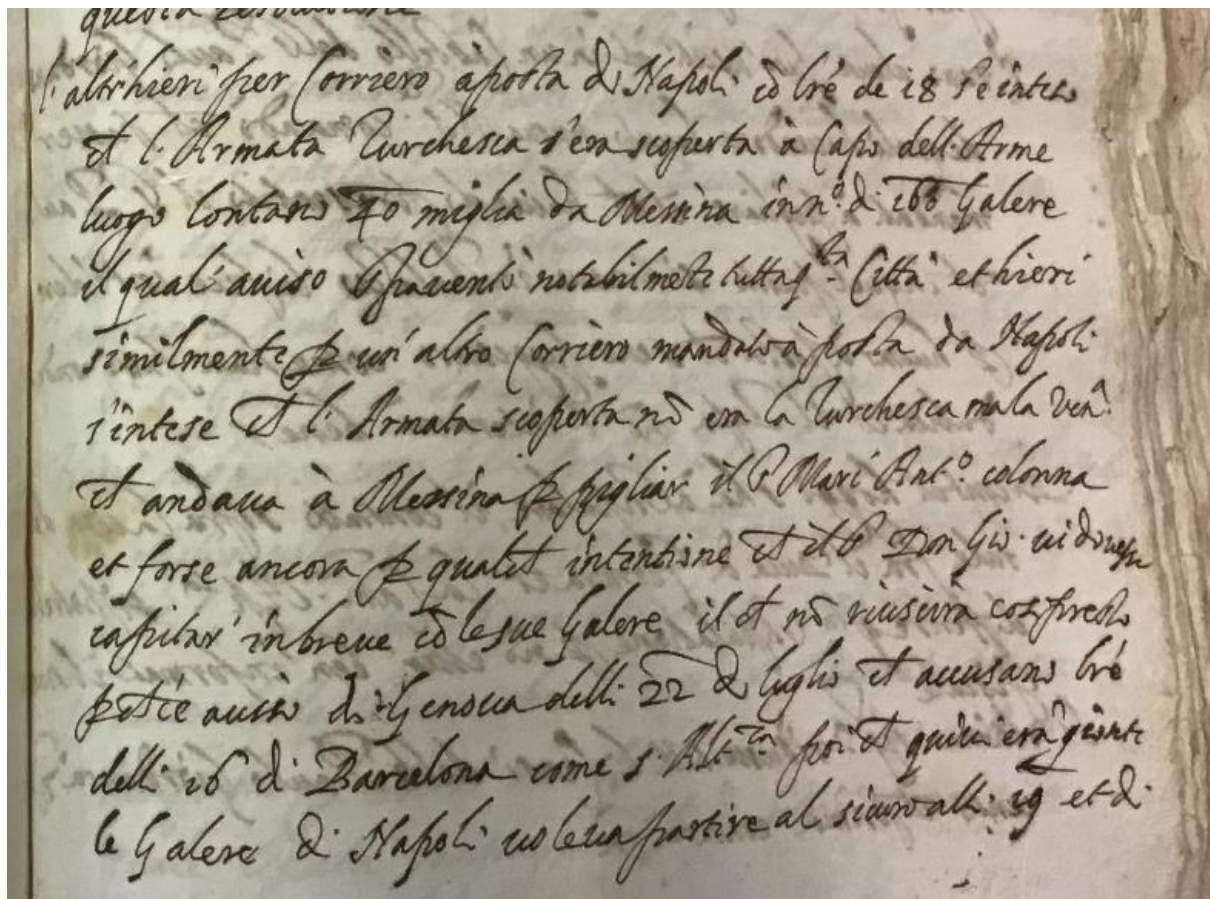 questa resolutione
l'altr'hieri per Corriero aposta di Napoli cõ lrẽ de 18 s'e inteso
ch l'Armata Turchesca s'era scoperta à Capo dell'Arme
luogo lontano 40 miglia da Messina in n.º di 166 Galere
il qual' auiso spauentò notabilmẽte tutta q.ta Città et hieri
similmente p un' altro Corriero mandato à posta da Napoli
s'intese ch l'Armata scoperta nõ era la Turchesca ma la Venã.
ch andaua à Messina p pigliar il S Marc' Ant.º colonna
et forse ancora p qualch intentione ch il S Don Gio. ui douesse
capitar' in breue cõ le sue Galere il ch nõ riuscirà cosi presto
p ch c'è auiso di Genoua delli 22 di luglio ch accusano lrẽ
delli 16 di Barcelona come s. Alt.za poi ch quiui erã gionte
le Galere di Napoli uoleua partire al sicuro alli 19 et di